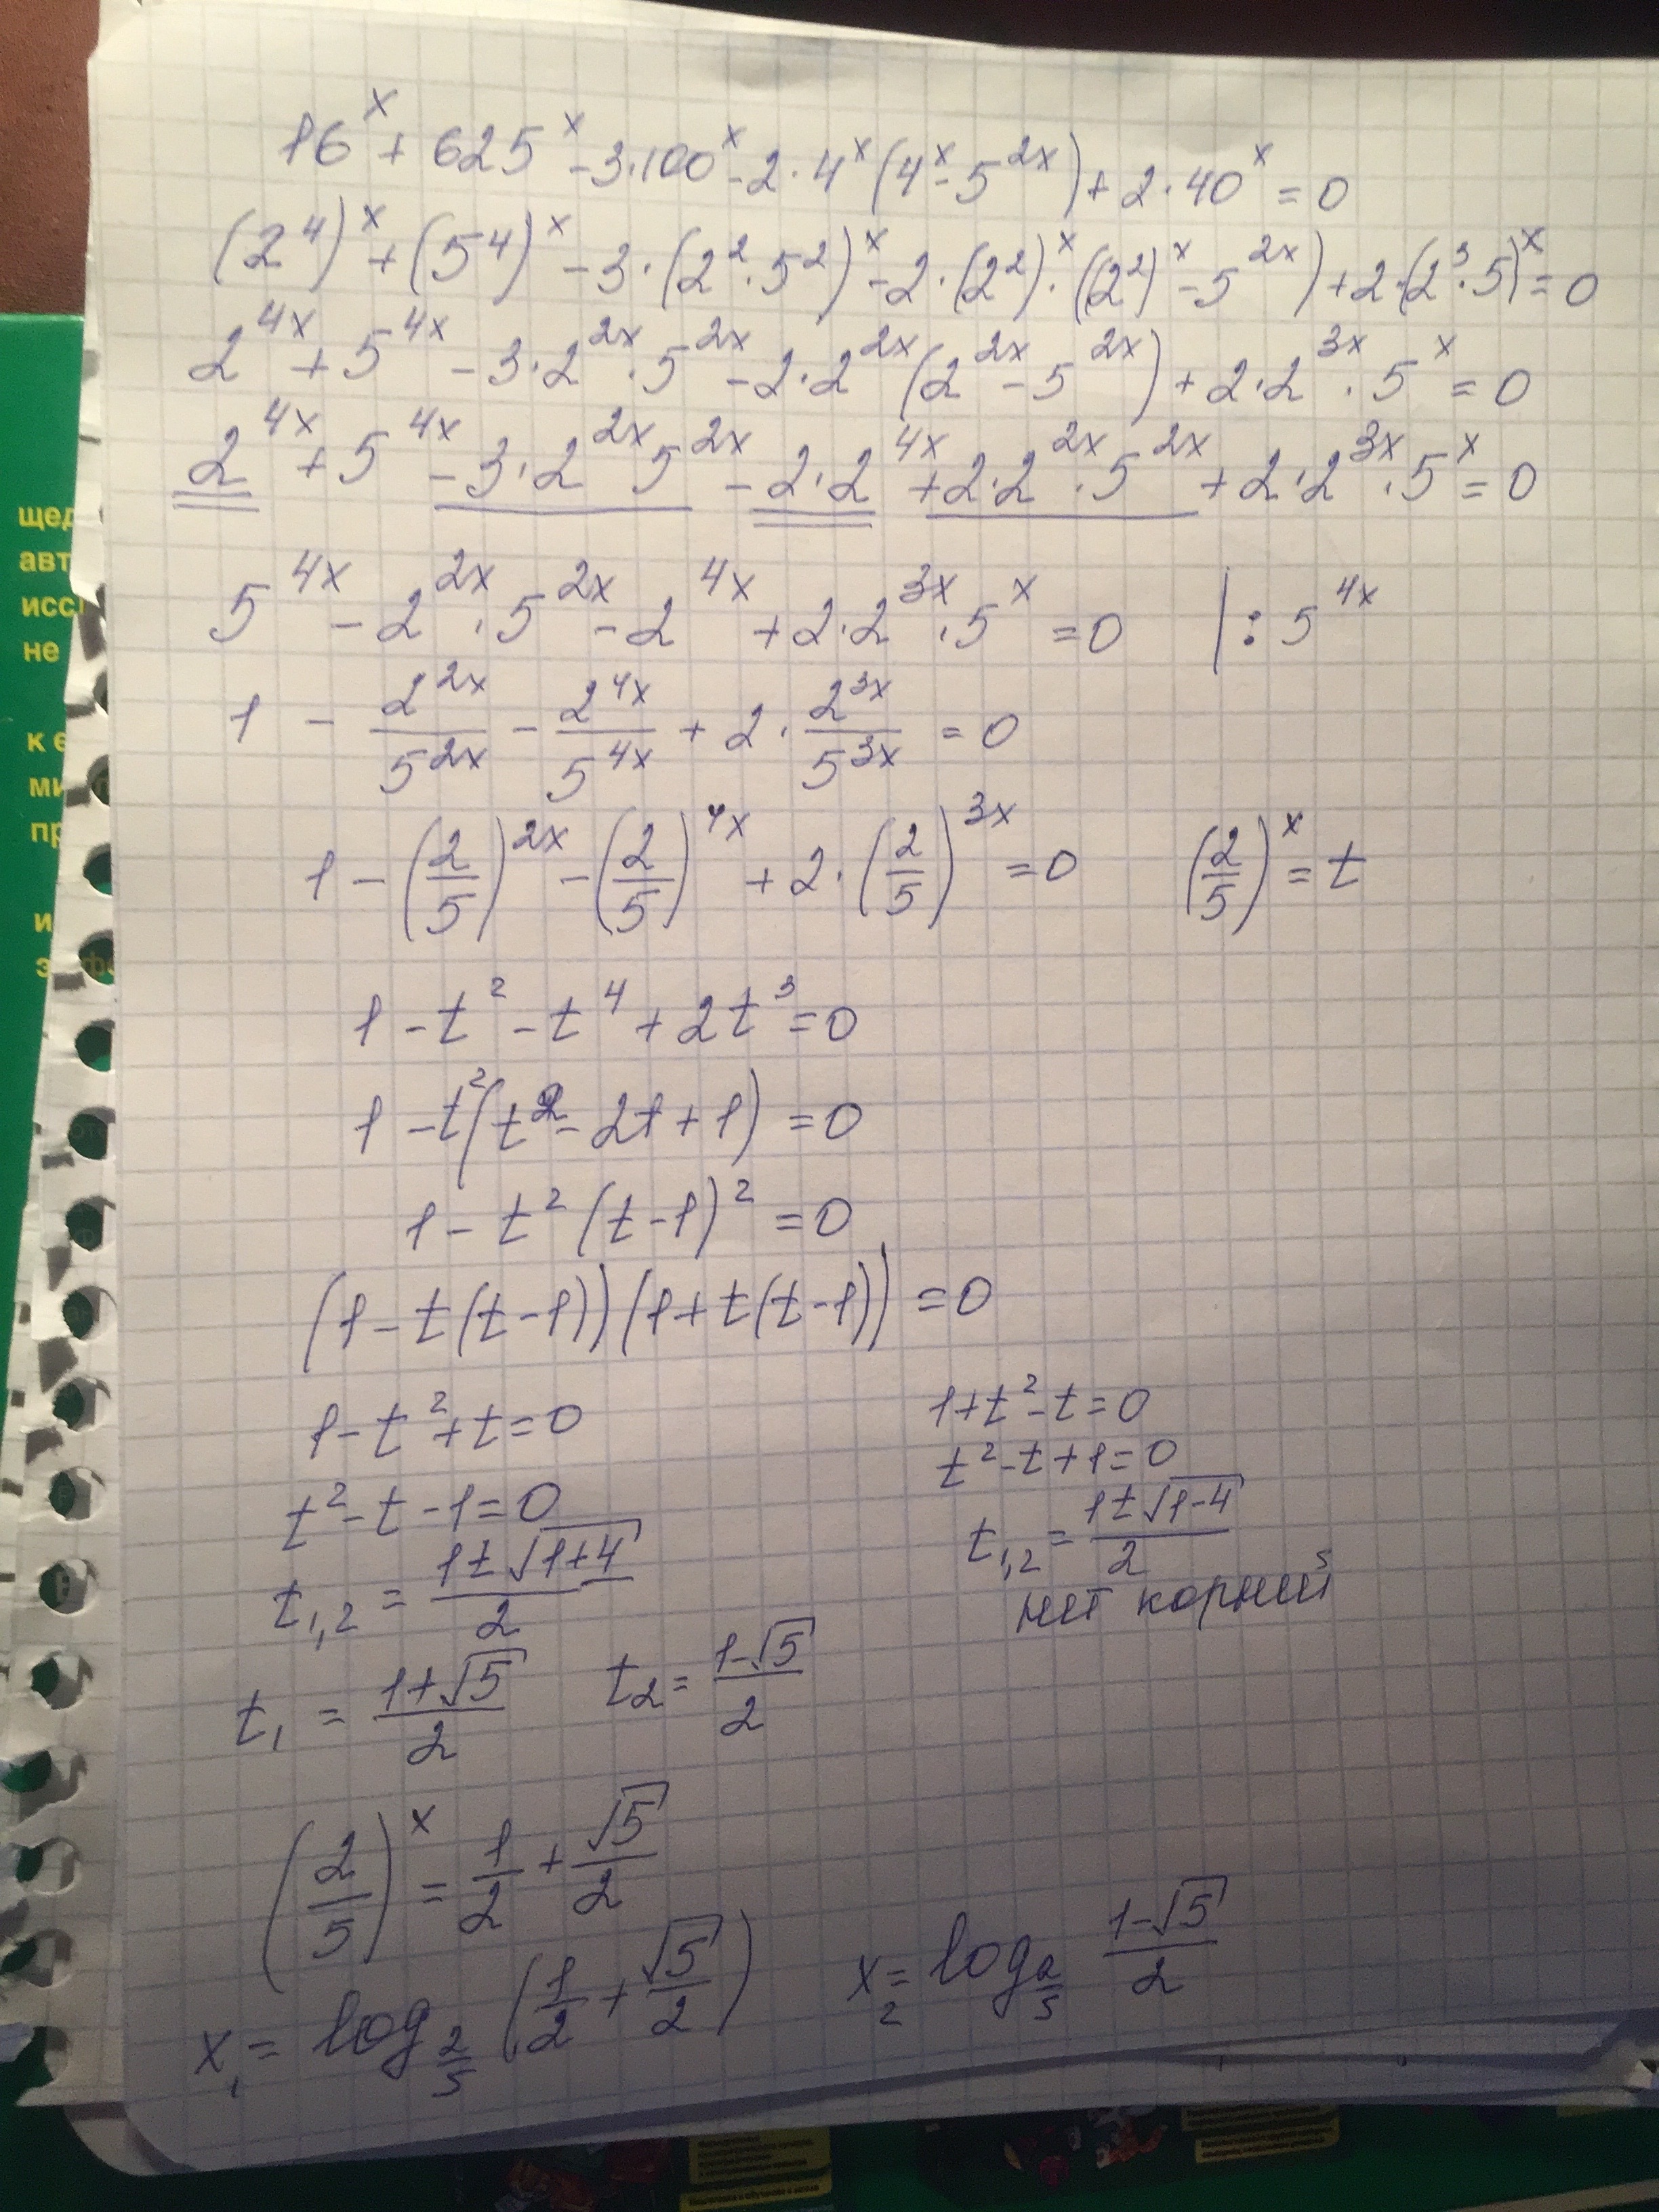 16^x + 625^x - 3·100^x - 2·4^x (4^x - 5^2x) + 2·40^x = 0
(2^4)^x + (5^4)^x - 3·(2^2·5^2)^x - 2·(2^2)^x·((2^2)^x - 5^2x) + 2·(2^3·5)^x = 0
2^4x + 5^4x - 3·2^2x·5^2x - 2·2^2x (2^2x - 5^2x) + 2·2^3x·5^x = 0
2^4x + 5^4x - 3·2^2x 5^2x - 2·2^4x + 2·2^2x·5^2x + 2·2^3x·5^x = 0
5^4x - 2^2x·5^2x - 2^4x + 2·2^3x·5^x = 0 | : 5^4x
1 - 2^2x/5^2x - 2^4x/5^4x + 2·2^3x/5^3x = 0
1 - (2/5)^2x - (2/5)^4x + 2·(2/5)^3x = 0 (2/5)^x = t
1 - t^2 - t^4 + 2t^3 = 0
1 - t^2(t^2 - 2t + 1) = 0
1 - t^2 (t-1)^2 = 0
(1 - t(t-1))(1 + t(t-1)) = 0
1 - t^2 + t = 0 1 + t^2 - t = 0
t^2 - t - 1 = 0 t^2 - t + 1 = 0
t1,2 = (1±√(1+4))/2 t1,2 = (1±√(1-4))/2
нет корний
t1 = (1+√5)/2 t2 = (1-√5)/2
(2/5)^x = 1/2 + √5/2
x1 = log2/5 (1/2 + √5/2) x2 = log2/5 (1-√5)/2
щед
авт
иссл
не
к е
ми
пр
и